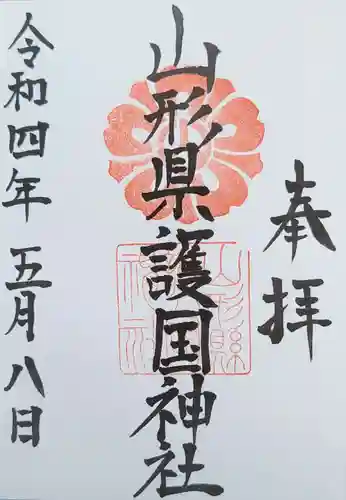 奉拝
山形県護国神社
令和四年五月八日